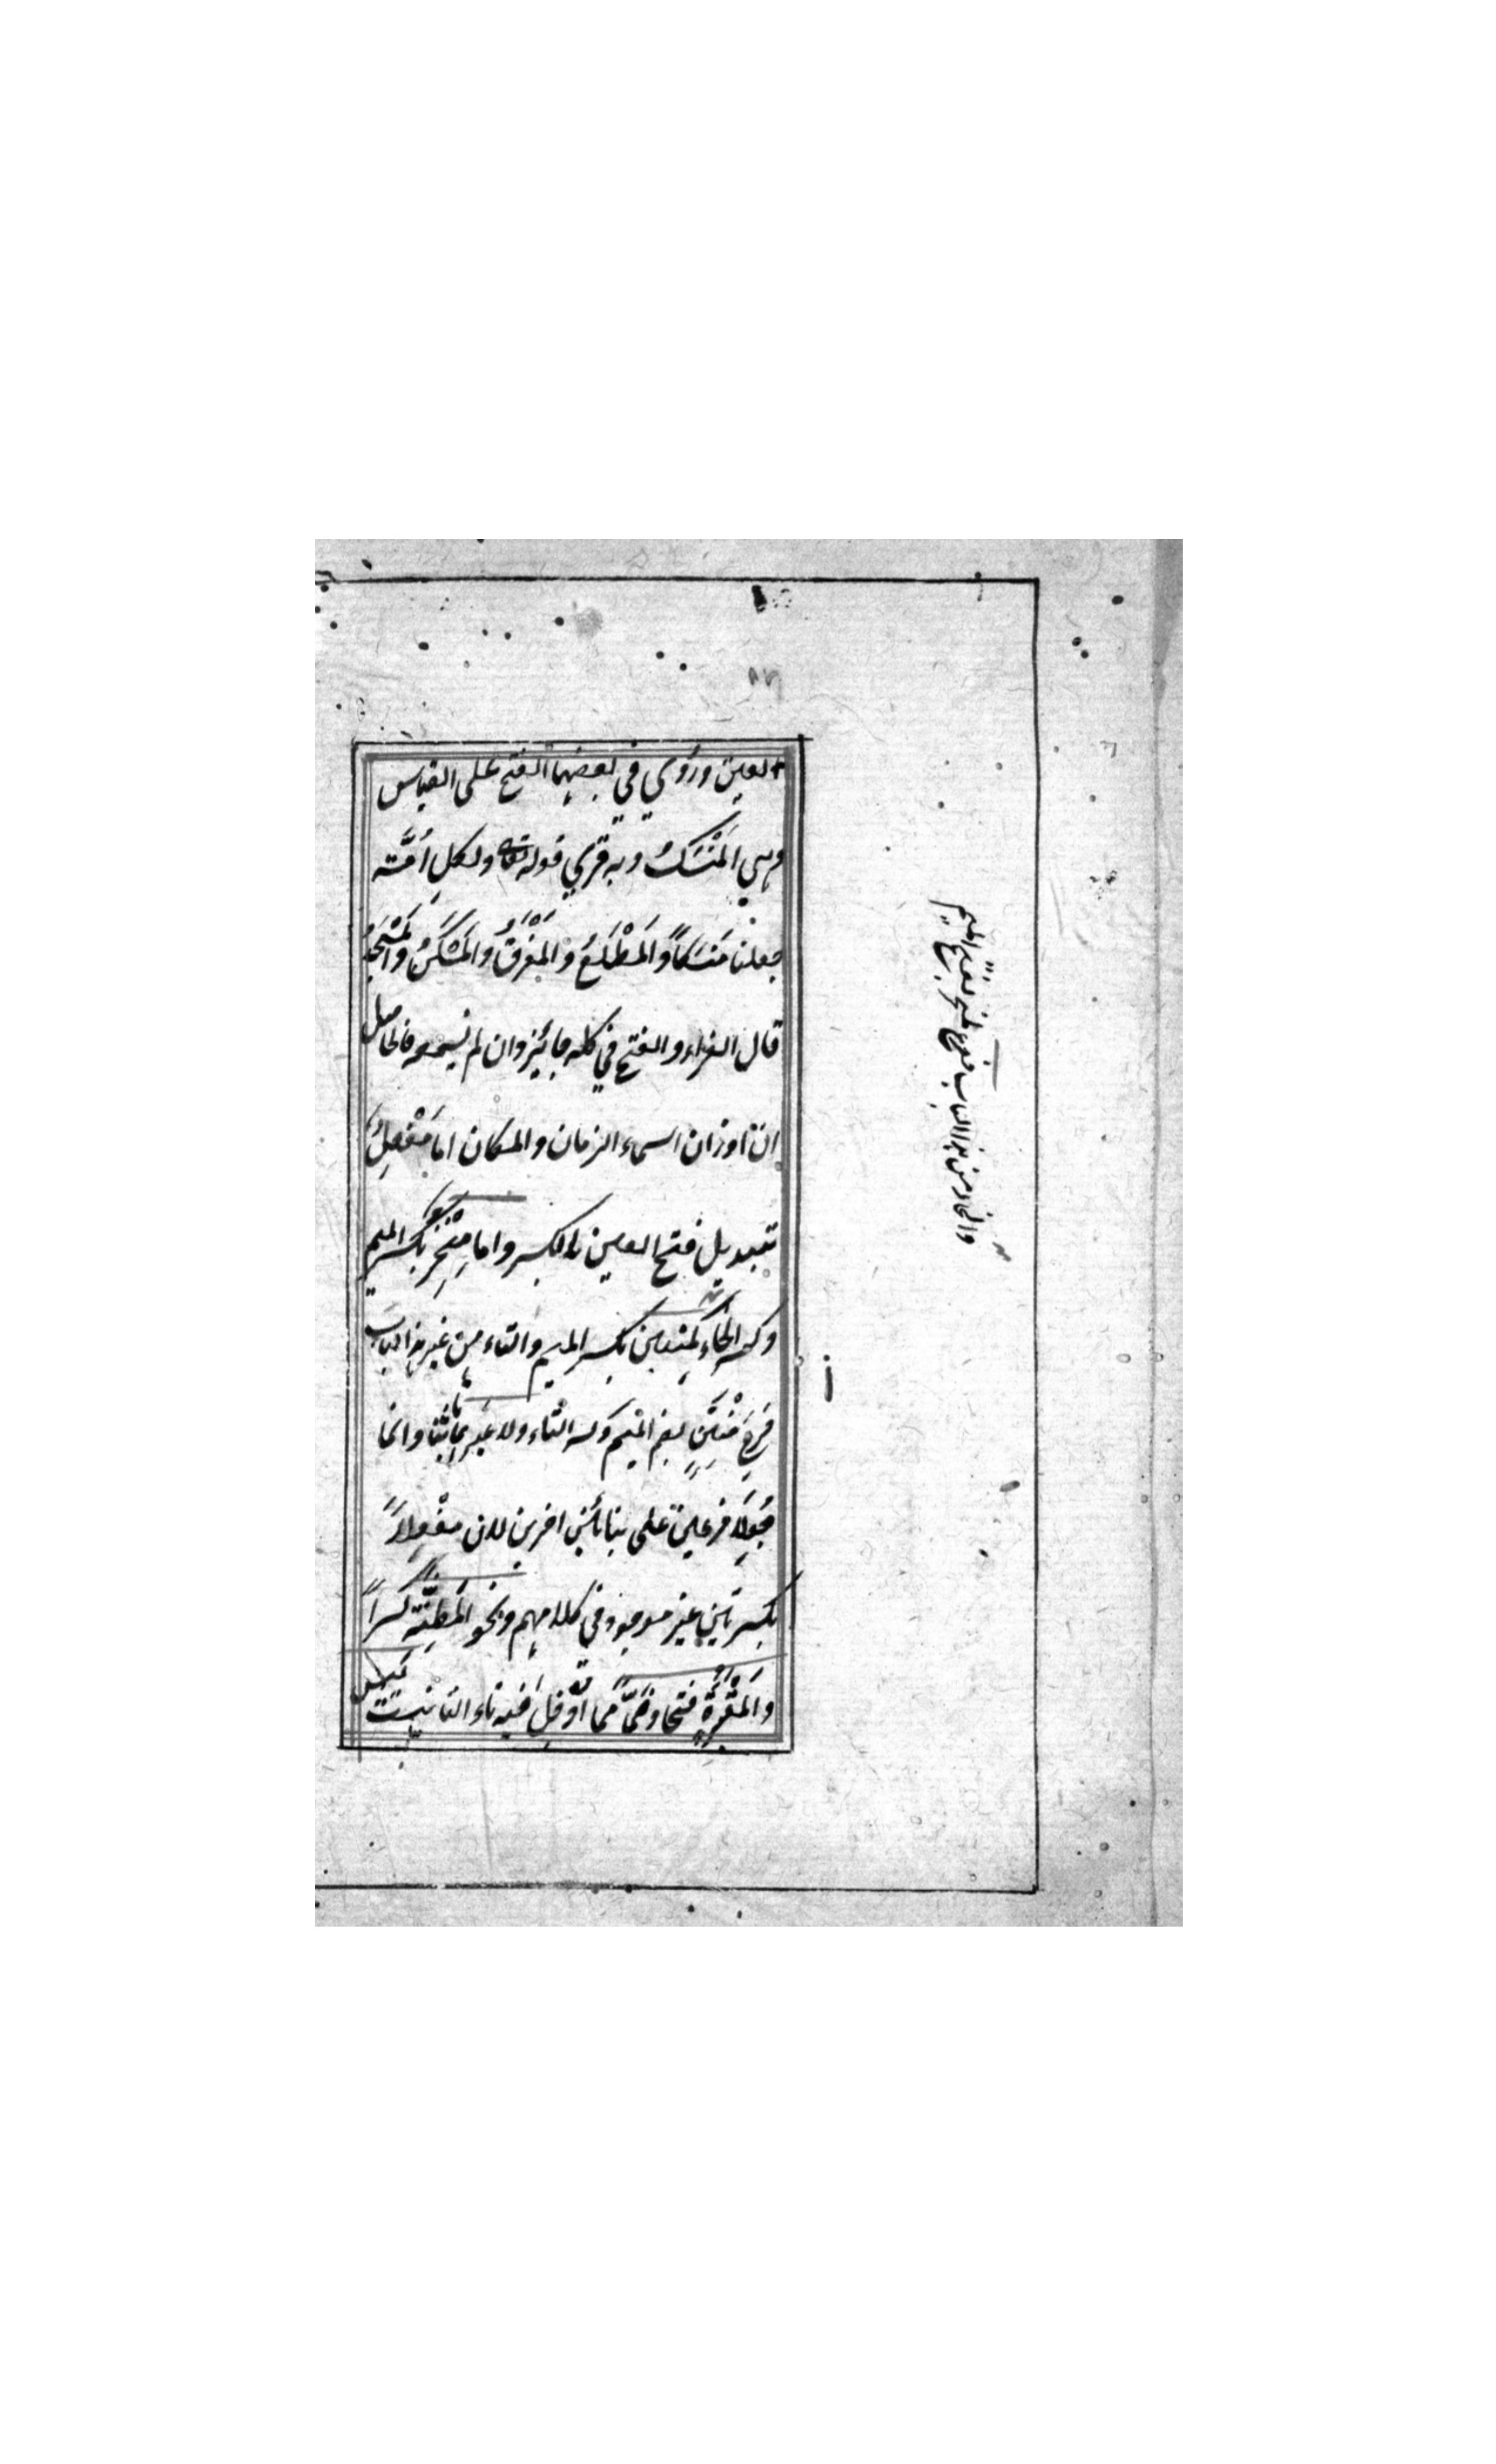 العين وروي في بعضها الفتح على القياس
وهي المَنْسَكُ وبه قرئ قوله تعالى ولكلِ أمَّة
جعلنا مَنسَكاً والمَطْلَعُ والمَفْرَقُ والمَسْكَنُ والمَسْجَدُ
قال الفراء والفتح في كله جائز وان لم نسمعه فالحاصل
ان اوزان اسماء الزمان والمكان اما مَفْعِلُ
تبديل فتح العين بالكسر واما مِنْخِر بكسر الميم
وكسر الخاء كمِنتِن بكسر الميم والتاء من غير هذا الباب
فَرعَ مُنْتِنٍ بضم الميم وكسر التاء ولا غيرهما بناء وانما
جُعِلا فرعين على بنائين اخرين لان مِفْعِلاً
بكسرتين غير موجود في كلامهم ونحو المَظِنَّة كسراً
والمَقْبَُرَةِ فتحا وضمّا مما اُدخِل فيه تاء التانيث
والخاء من هذا الباب فرع منخر بفتح الميم